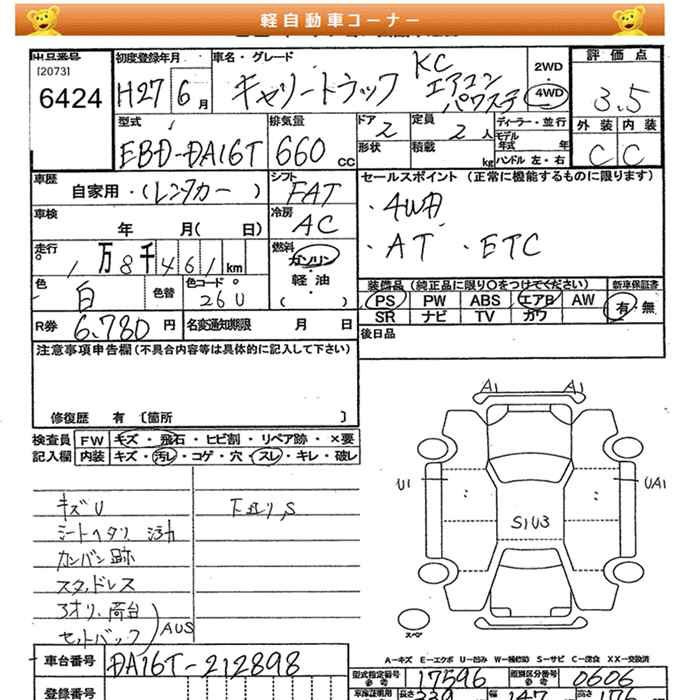 軽自動車コーナー
出品番号 初度登録年月 車名・グレード KC 2WD 評価点
[2073] 6424 H27 6月 キャリートラック エアコン パワステ 4WD 3.5
型式 排気量 ドア 2 定員 2人 ディーラー・並行 外装 内装
EBD-DA16T 660cc 形状 積載 kg モデル年式 年 ハンドル 左・右 C C
車歴 自家用・(レンタカー) シフト FAT セールスポイント (正常に機能するものに限ります)
車検 年 月( 日) 冷房 AC ・4WD
走行 1万8千461km 燃料 ガソリン・軽油・( ) ・AT ・ETC
色 白 色替 色コード 26U 装備品 (純正品に限り○をつけてください) 新車保証書
PS PW ABS エアB AW 有・無
SR ナビ TV カワ
R券 6,780円 名変通知期限 月 日 後日品
注意事項申告欄(不具合内容等は具体的に記入して下さい)
修復歴 有 〔箇所 〕
検査員 FW キズ・飛石・ヒビ割・リペア跡・×要
記入欄 内装 キズ・汚レ・コゲ・穴・スレ・キレ・破レ
キズU 下廻り,S
シートヘタリ 汚れ
カンバン跡
スタッドレス
3オリ、荷台
セットバック AUS
A1 A1
U1 UA1
S1U3
スペア
A-キズ E-エクボ U-凹み W-補修跡 S-サビ C-腐食 XX-交換済
車台番号 DA16T-212898 型式指定番号 参考 17596 類別区分番号 参考 0606
登録番号 車庫証明用 長さ 339 幅 147 高さ 176